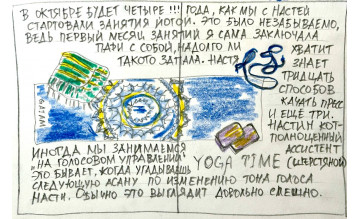 В ОКТЯБРЕ БУДЕТ ЧЕТЫРЕ!!! ГОДА, КАК МЫ С НАСТЕЙ
СТАРТОВАЛИ ЗАНЯТИЯ ЙОГОЙ. ЭТО БЫЛО НЕЗАБЫВАЕМО,
ВЕДЬ ПЕРВЫЙ МЕСЯЦ ЗАНЯТИЙ Я САМА ЗАКЛЮЧАЛА
ПАРИ С СОБОЙ, НАДОЛГО ЛИ ХВАТИТ
ТАКОГО ЗАПАЛА. НАСТЯ ЗНАЕТ
ТРИДЦАТЬ
СПОСОБОВ
КАЧАТЬ ПРЕСС
И ЕЩЁ ТРИ.
НАСТИН КОТ-
ПОЛНОЦЕННЫЙ
АССИСТЕНТ
(ШЕРСТЯНОЙ)
ИНОГДА МЫ ЗАНИМАЕМСЯ
"НА ГОЛОСОВОМ УПРАВЛЕНИИ"
ЭТО БЫВАЕТ, КОГДА УГАДЫВАЕШЬ
СЛЕДУЮЩУЮ АСАНУ ПО ИЗМЕНЕНИЮ ТОНА ГОЛОСА
НАСТИ. ОБЫЧНО ЭТО ВЫГЛЯДИТ ДОВОЛЬНО СМЕШНО.
YOGA TIME